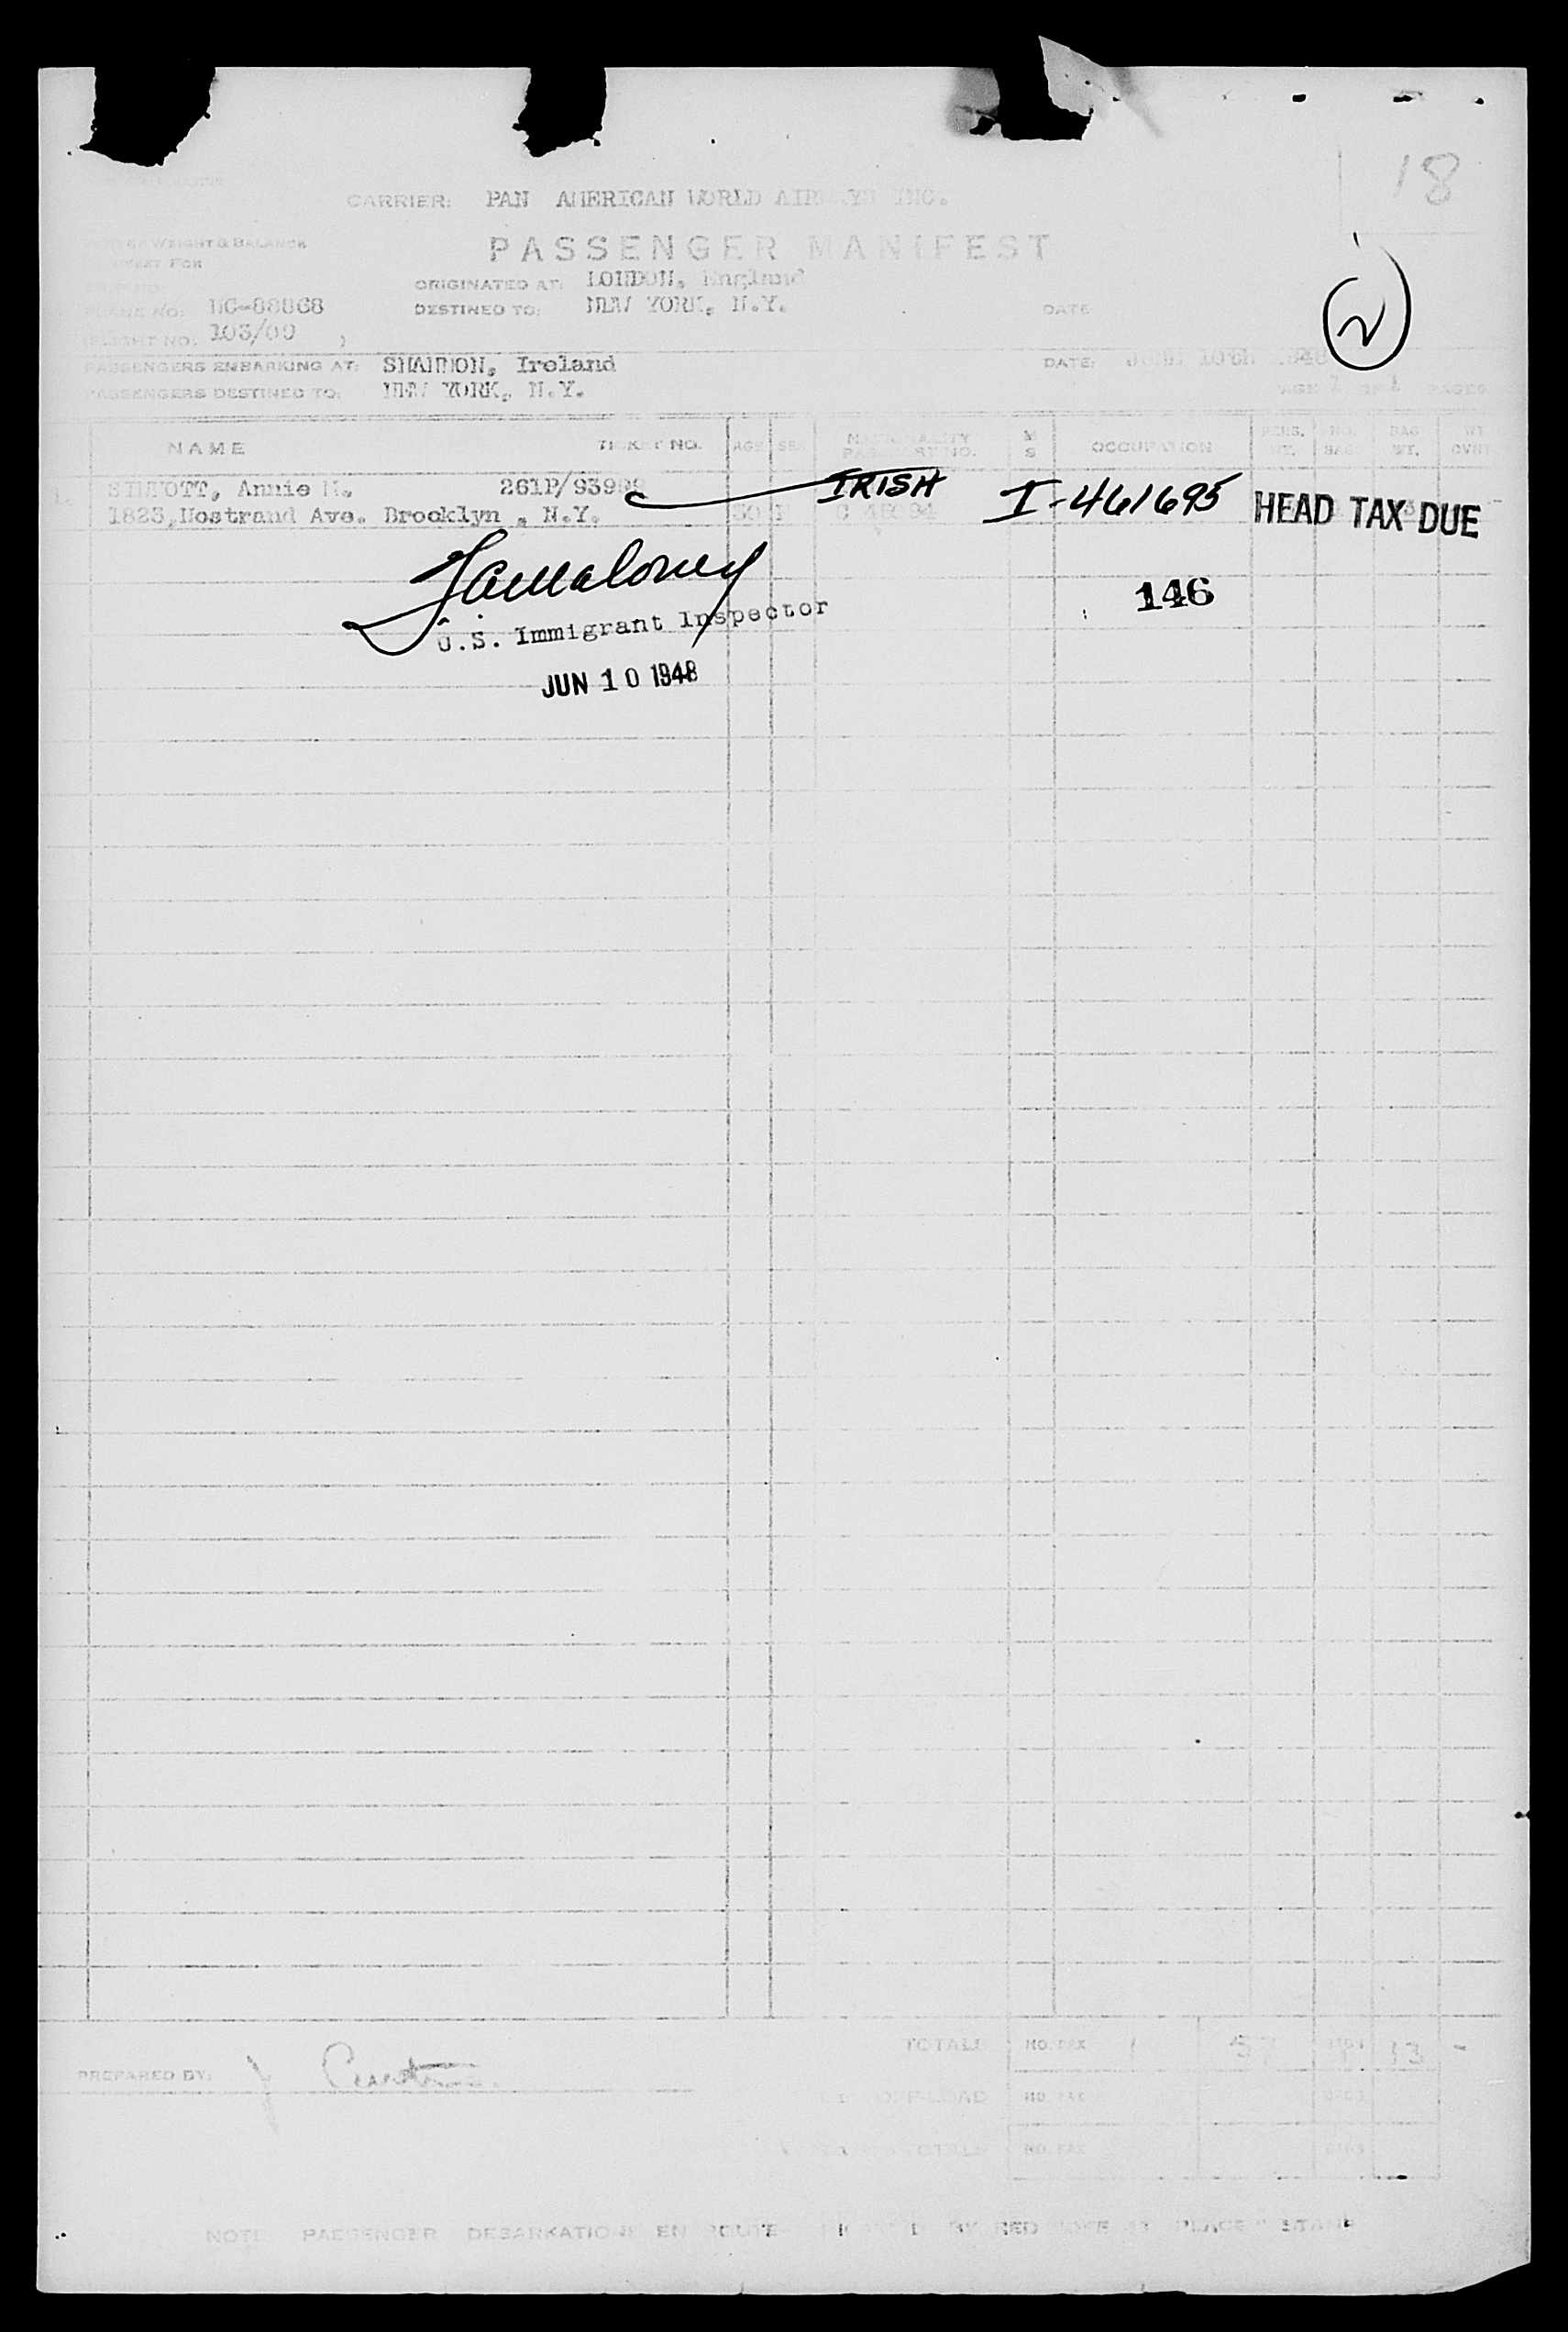 18
CARRIER: PAN AMERICAN WORLD AIRWAYS INC.
WEIGHT & BALANCE
PASSENGER MANIFEST
FOR
ORIGINATED AT: LONDON, England
PLANE NO: NC-88868 DESTINED TO: NEW YORK, N.Y. DATE
2
FLIGHT NO: 103/09
PASSENGERS EMBARKING AT: SHANNON, Ireland DATE: JUNE 10TH 1948
PASSENGERS DESTINED TO: NEW YORK, N.Y. PAGE 1 OF 1 PAGES
NAME TICKET NO. AGE SEX NATIONALITY PASSPORT NO. V S OCCUPATION PERS. WT. NO. BAG. BAG WT. WT OVER
1. SINNOTT, Annie M. 261P/93999 IRISH I-461695 HEAD TAX DUE
1823, Nostrand Ave. Brooklyn, N.Y. 30 F
Jamaloney
146
U.S. Immigrant Inspector
JUN 10 1948
TOTALS NO. PAX 1 57 13 -
PREPARED BY:
OFF-LOAD NO. PAX
TOTALS NO. PAX
NOTE PASSENGER DEBARKATIONS EN ROUTE BY RED PLACE STAMP